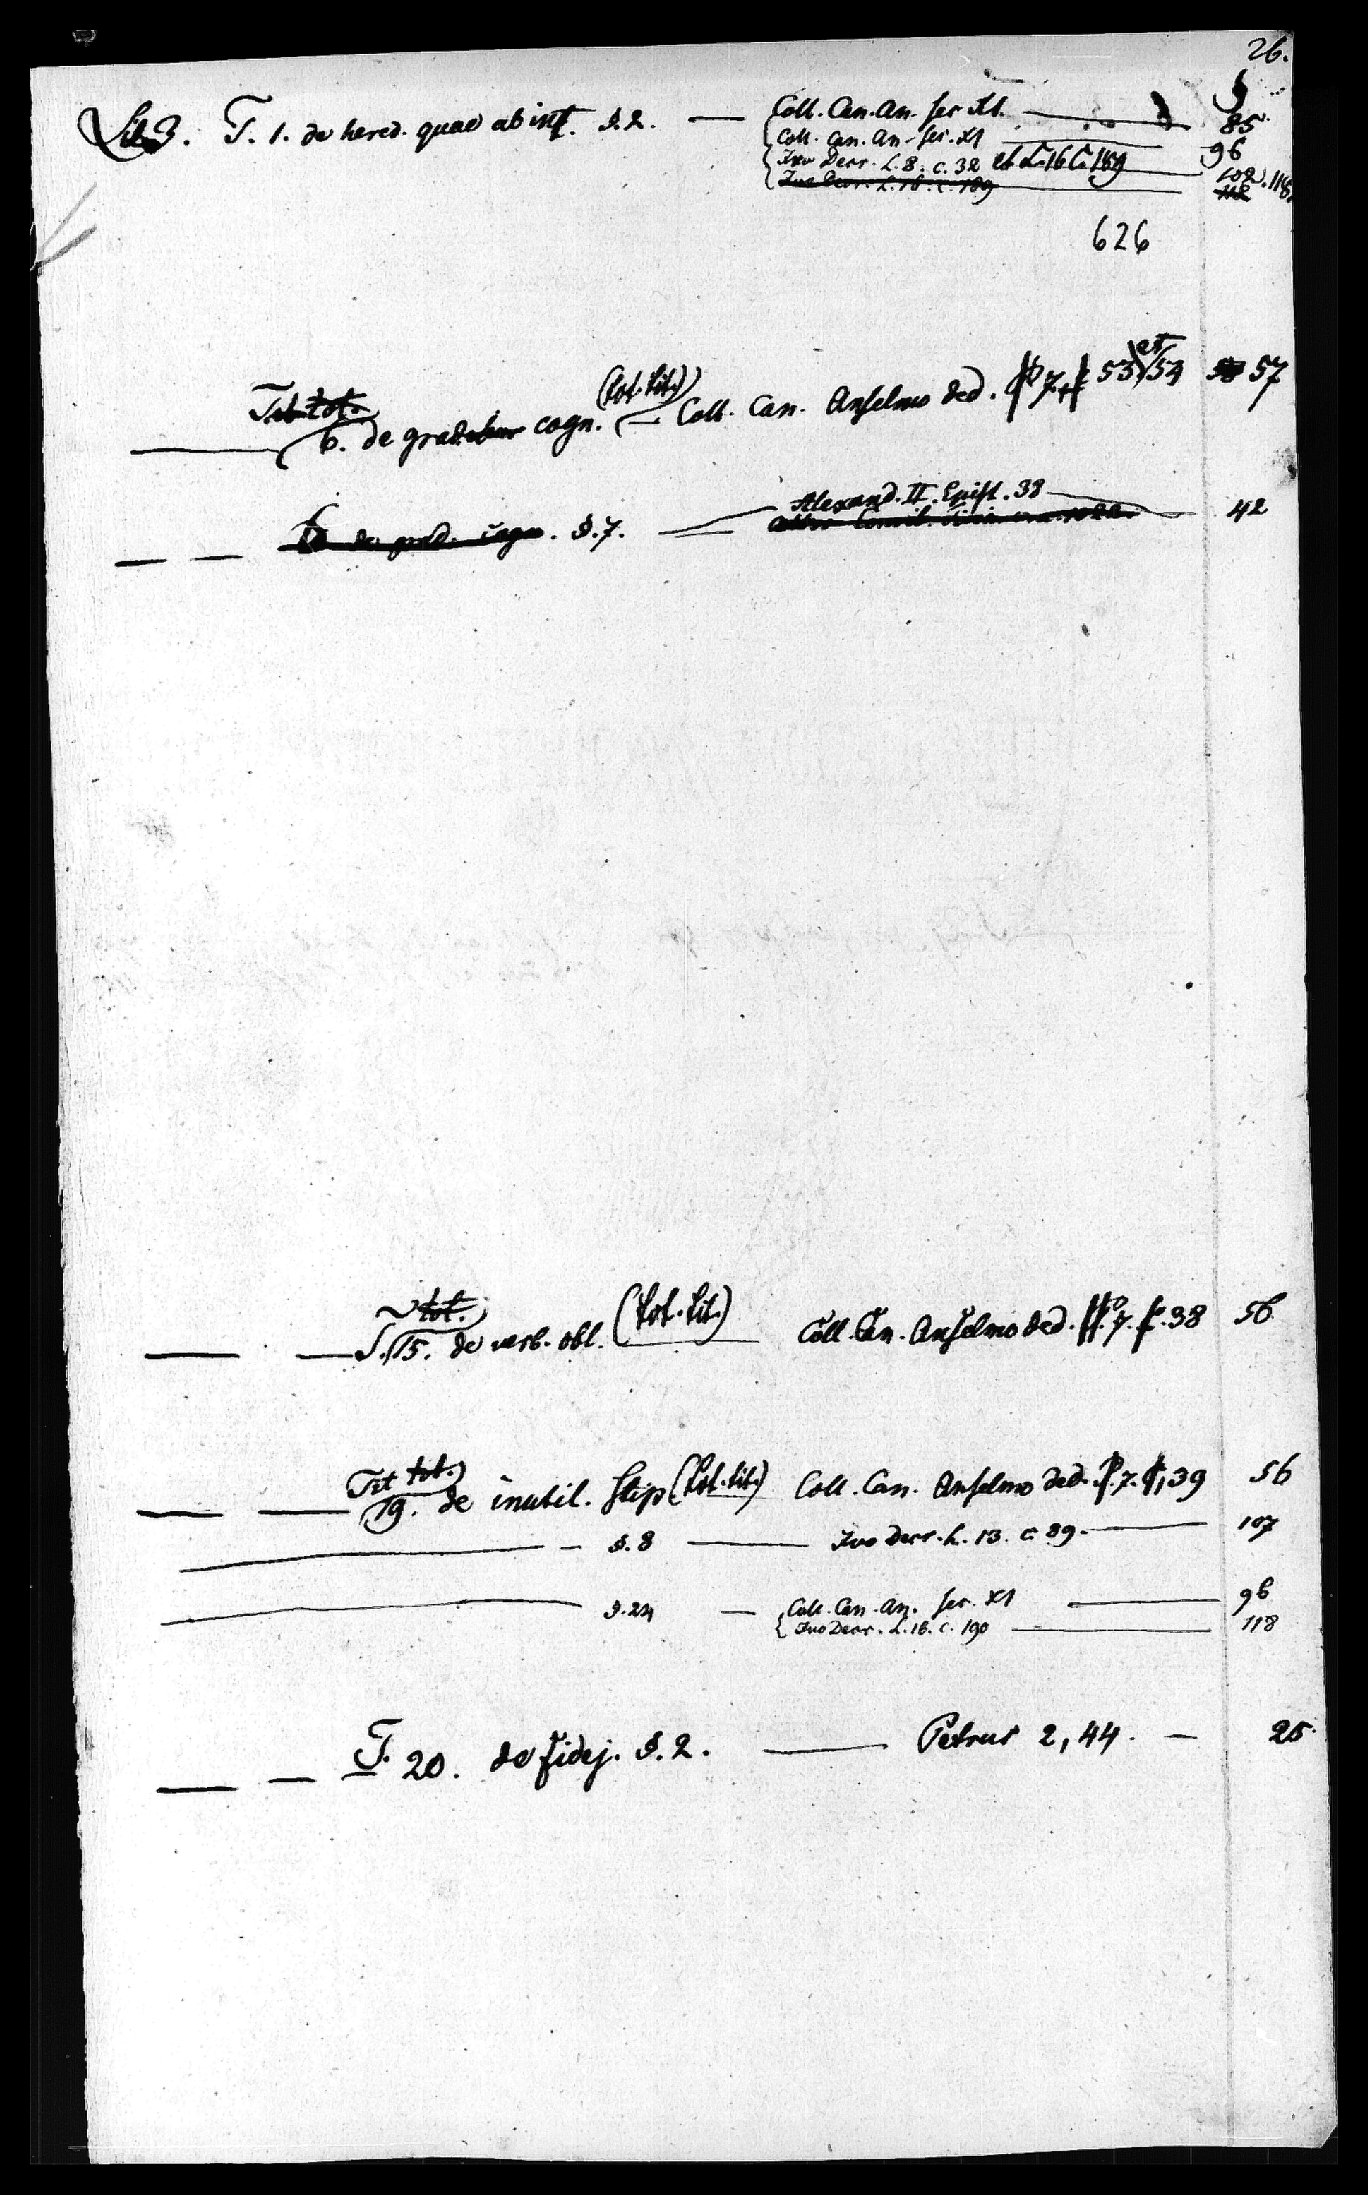 26.
Lib 3. T. 1. de hered. quae ab int. §. 2. — Coll. Can. An. ser XI. — 85
Coll. Can. An. ser. XI — 96
Ivo Decr. L. 8. c. 32 et L. 16 c. 189 — 102. 118.
Ivo Decr. L. 16. c. 189 — 118
626
Tit tot. (tot. tit.)
— 6. de gradibus cogn. — Coll. Can. Anselmo ded. P 7. 53 et 54 57
— — 6 de grad. cogn. §. 7. — Alexand. II. Epist. 38 — 42
tot. (tot. tit.)
— — T. 15. de verb. obl. — Coll. Can. Anselmo ded. P. 7. 38 56
Tit tot.
— — 19. de inutil. Stip (tot. tit.) Coll. Can. Anselmo ded. P. 7. 39 56
— — §. 8 — Ivo Decr. L. 13. c. 89. — 107
— §. 24 — Coll. Can. An. ser. XI — 96
Ivo Decr. L. 16. c. 190 — 118
— — T. 20. de fidej. §. 2. — Petrus 2, 44. — 25